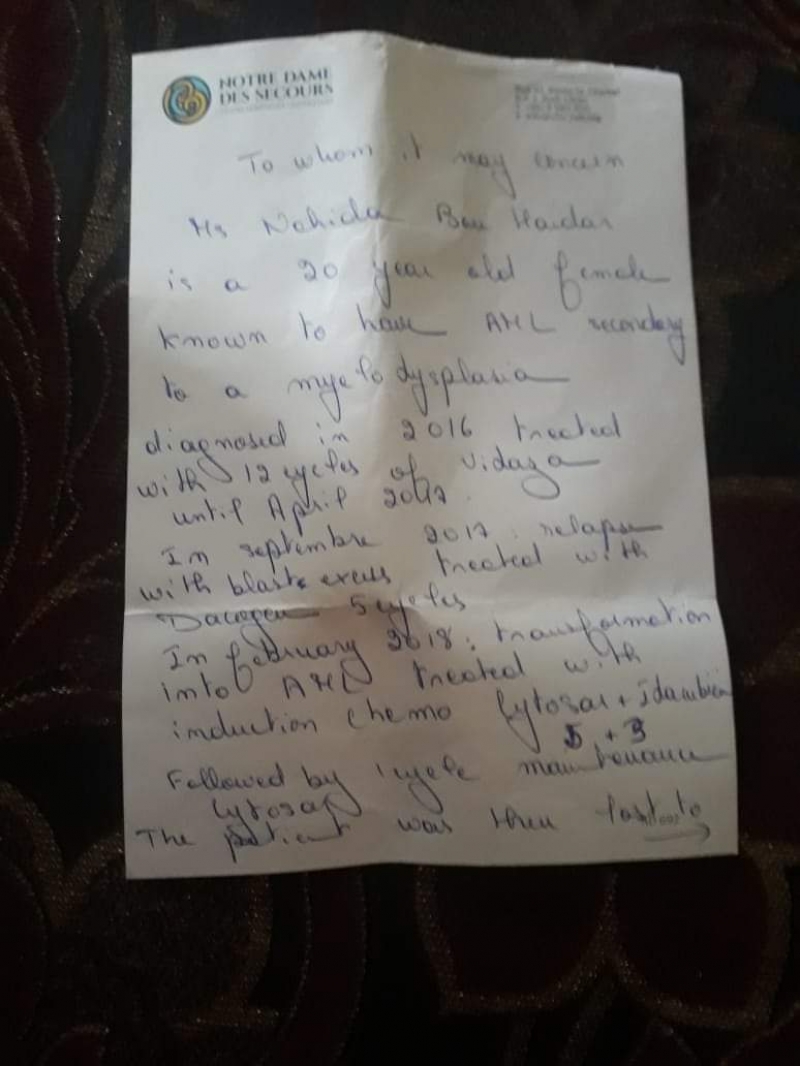 NOTRE DAME
DES SECOURS
To whom it may concern
Ms Nahida Bou Haidar
is a 20 year old female
known to have AML secondary
to a myelodysplasia
diagnosed in 2016 treated
with 12 cycles of Vidaza
until April 2017.
In septembre 2017 : relapse
with blasts excess treated with
Dacogen 5 cycles
In february 2018 : transformation
into AML treated with
induction chemo Cytosar + Idarubicin
5 + 3
Followed by 1 cycle maintenance
Cytosar
The patient was then lost to